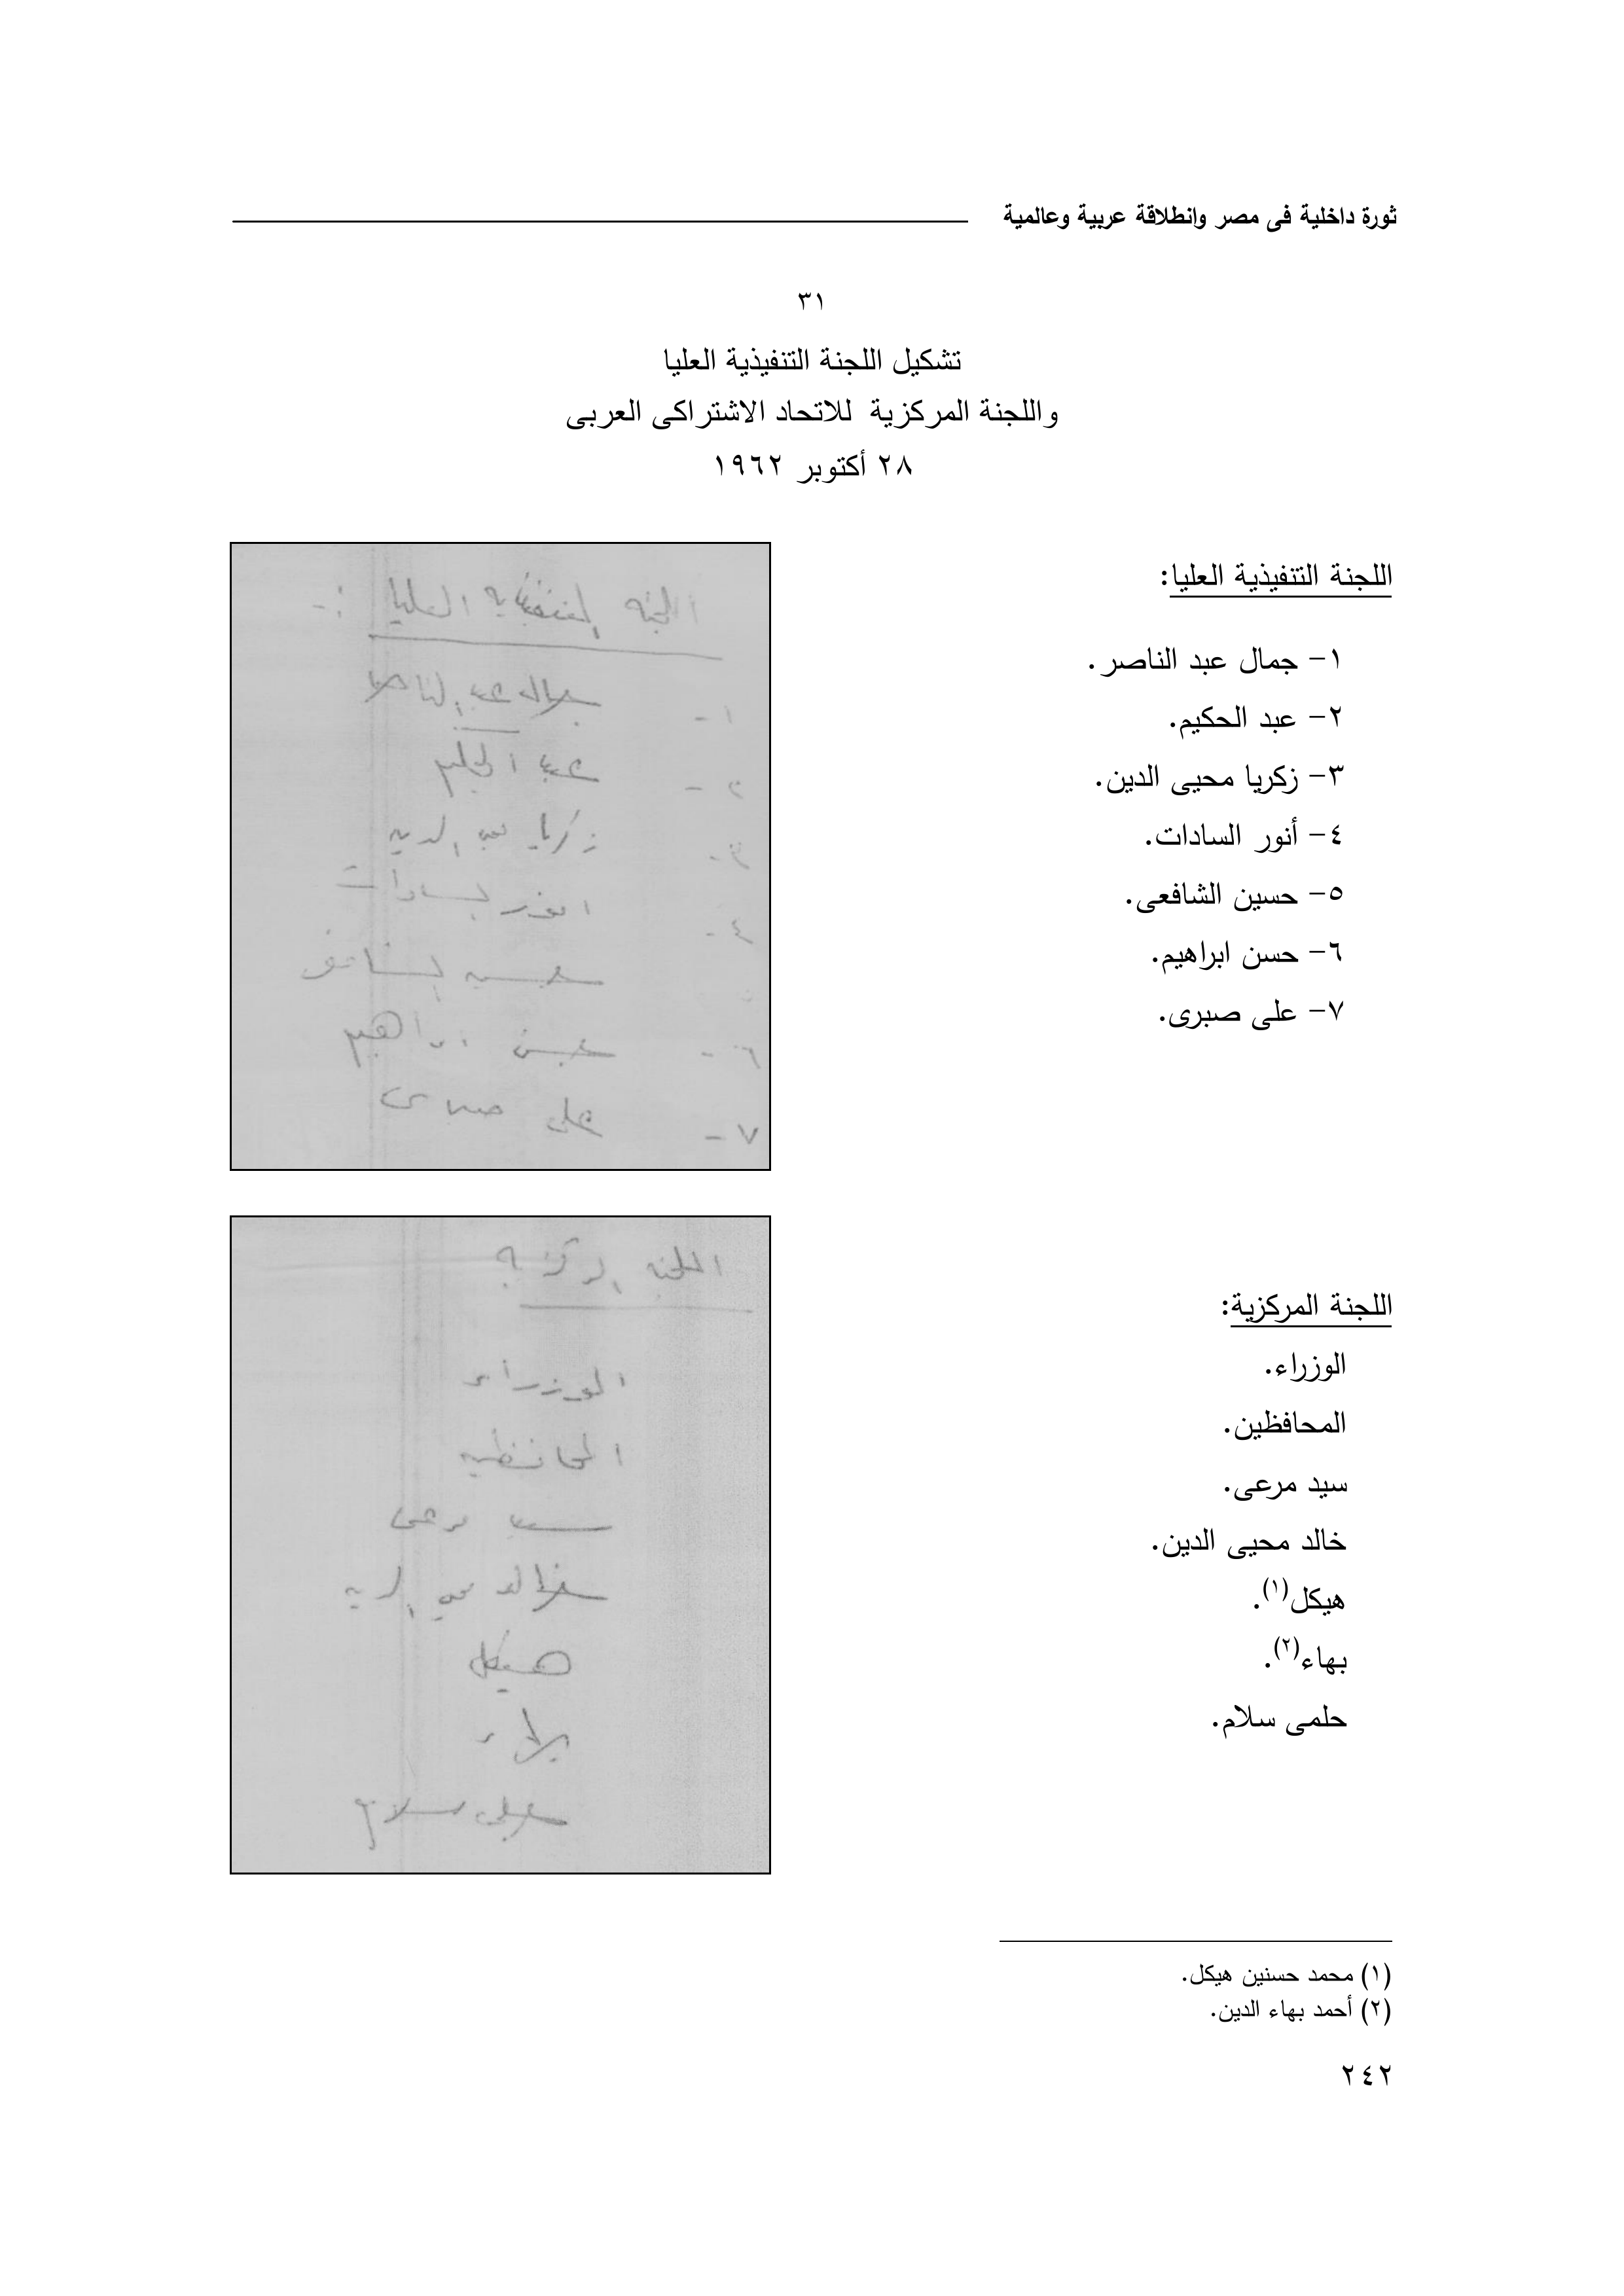 ثورة داخلية فى مصر وانطلاقة عربية وعالمية
٣١
تشكيل اللجنة التنفيذية العليا
واللجنة المركزية للاتحاد الاشتراكى العربى
٢٨ أكتوبر ١٩٦٢
اللجنة التنفيذية العليا:
١- جمال عبد الناصر.
٢- عبد الحكيم.
٣- زكريا محيى الدين.
٤- أنور السادات.
٥- حسين الشافعى.
٦- حسن ابراهيم.
٧- على صبرى.
اللجنه التنفيذيه العليا :-
١- جمال عبد الناصر
٢- عبد الحكيم
٣- زكريا محى الدين
٤- انور السادات
حسين الشافعى
٦- حسن ابراهيم
٧- على صبرى
اللجنة المركزية:
الوزراء.
المحافظين.
سيد مرعى.
خالد محيى الدين.
هيكل(١).
بهاء(٢).
حلمى سلام.
اللجنه المركزيه
الوزراء
المحافظين
سيد مرعى
خالد محى الدين
هيكل
بهاء
حلمى سلام
(١) محمد حسنين هيكل.
(٢) أحمد بهاء الدين.
٢٤٢